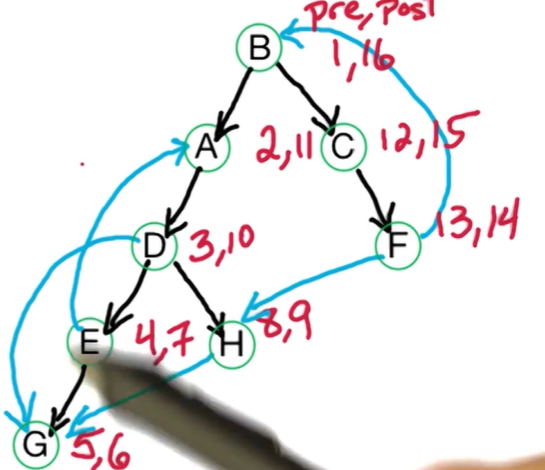 pre, post
B
1,16
A
2,11
C
12,15
D
3,10
F
13,14
E
4,7
H
8,9
G
5,6